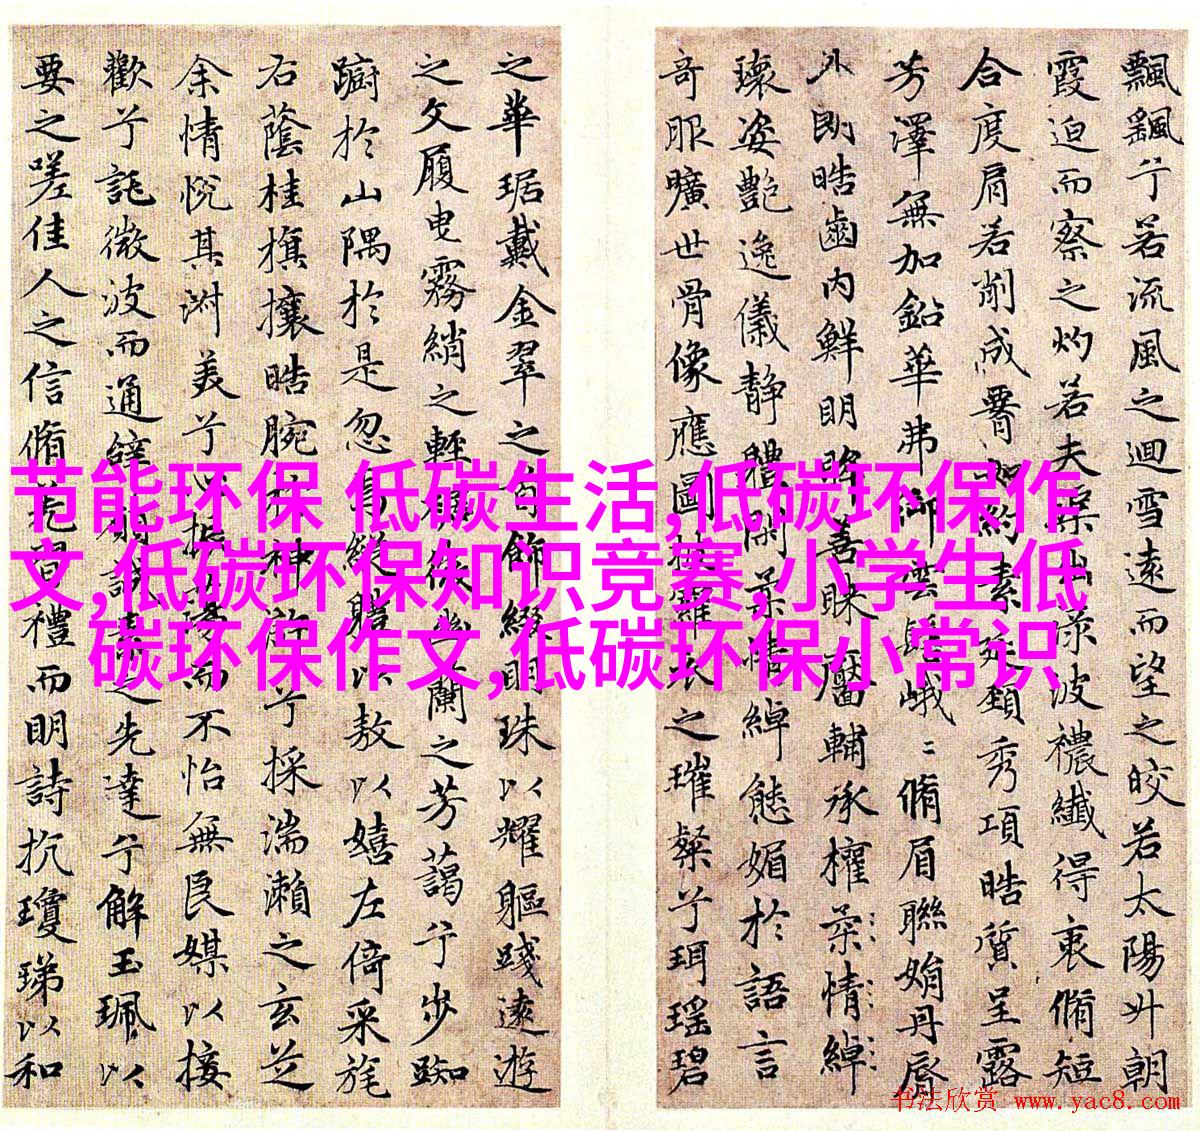 飄飖兮若流風之迴雪遠而望之皎若太陽升朝
霞迫而察之灼若夫蕖出渌波襛纖得衷脩短
合度肩若削成䙅如約素延頸秀項皓質呈露
芳澤無加鉛華弗御雲髻峨〻脩眉聯娟丹脣
外朗皓齒内鮮明眸善睞靨輔承權柔情綽
瓌姿艷逸儀静體閑柔情綽態媚於語言
奇服曠世骨像應圖披羅衣之璀粲兮珥瑶碧
之華琚戴金翠之首飾綴明珠以耀軀踐遠遊
之文履曳霧綃之輕裾微幽蘭之芳藹兮步踟
蹰於山隅於是忽焉縱體以敖以嬉左倚采旄
右蔭桂旗攘皓腕於神滸兮採湍瀨之玄芝
余情悅其淑美兮心振蕩而不怡無良媒以接
歡兮託微波而通辭願誠素之先達兮解玉珮以
要之嗟佳人之信脩羌習禮而明詩抗瓊珶以和
节能环保 低碳生活,低碳环保作
文,低碳环保知识竞赛,小学生低
碳环保作文,低碳环保小常识
书法欣赏 www.yac8.com